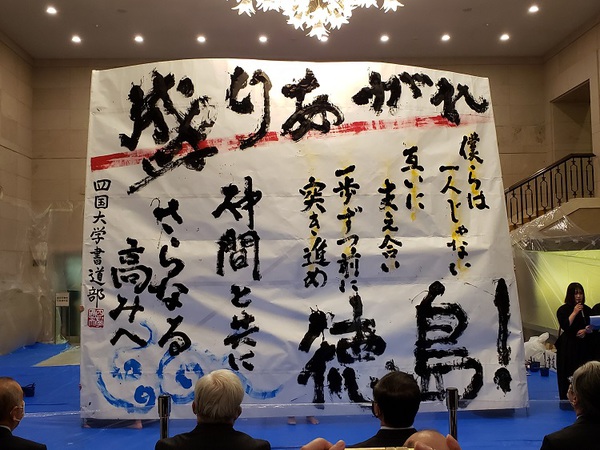 盛りあがれ
徳島!
僕らは
一人じゃない
互いに
支え合い
一歩ずつ前に
突き進め
仲間と共に
さらなる
高みへ
四国大学書道部